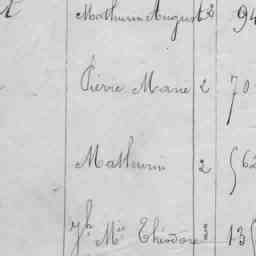 Mathurin August 2 94
Pierre Marie 2 70
Mathurin 2 562
Jh Mie Théodore 3 135